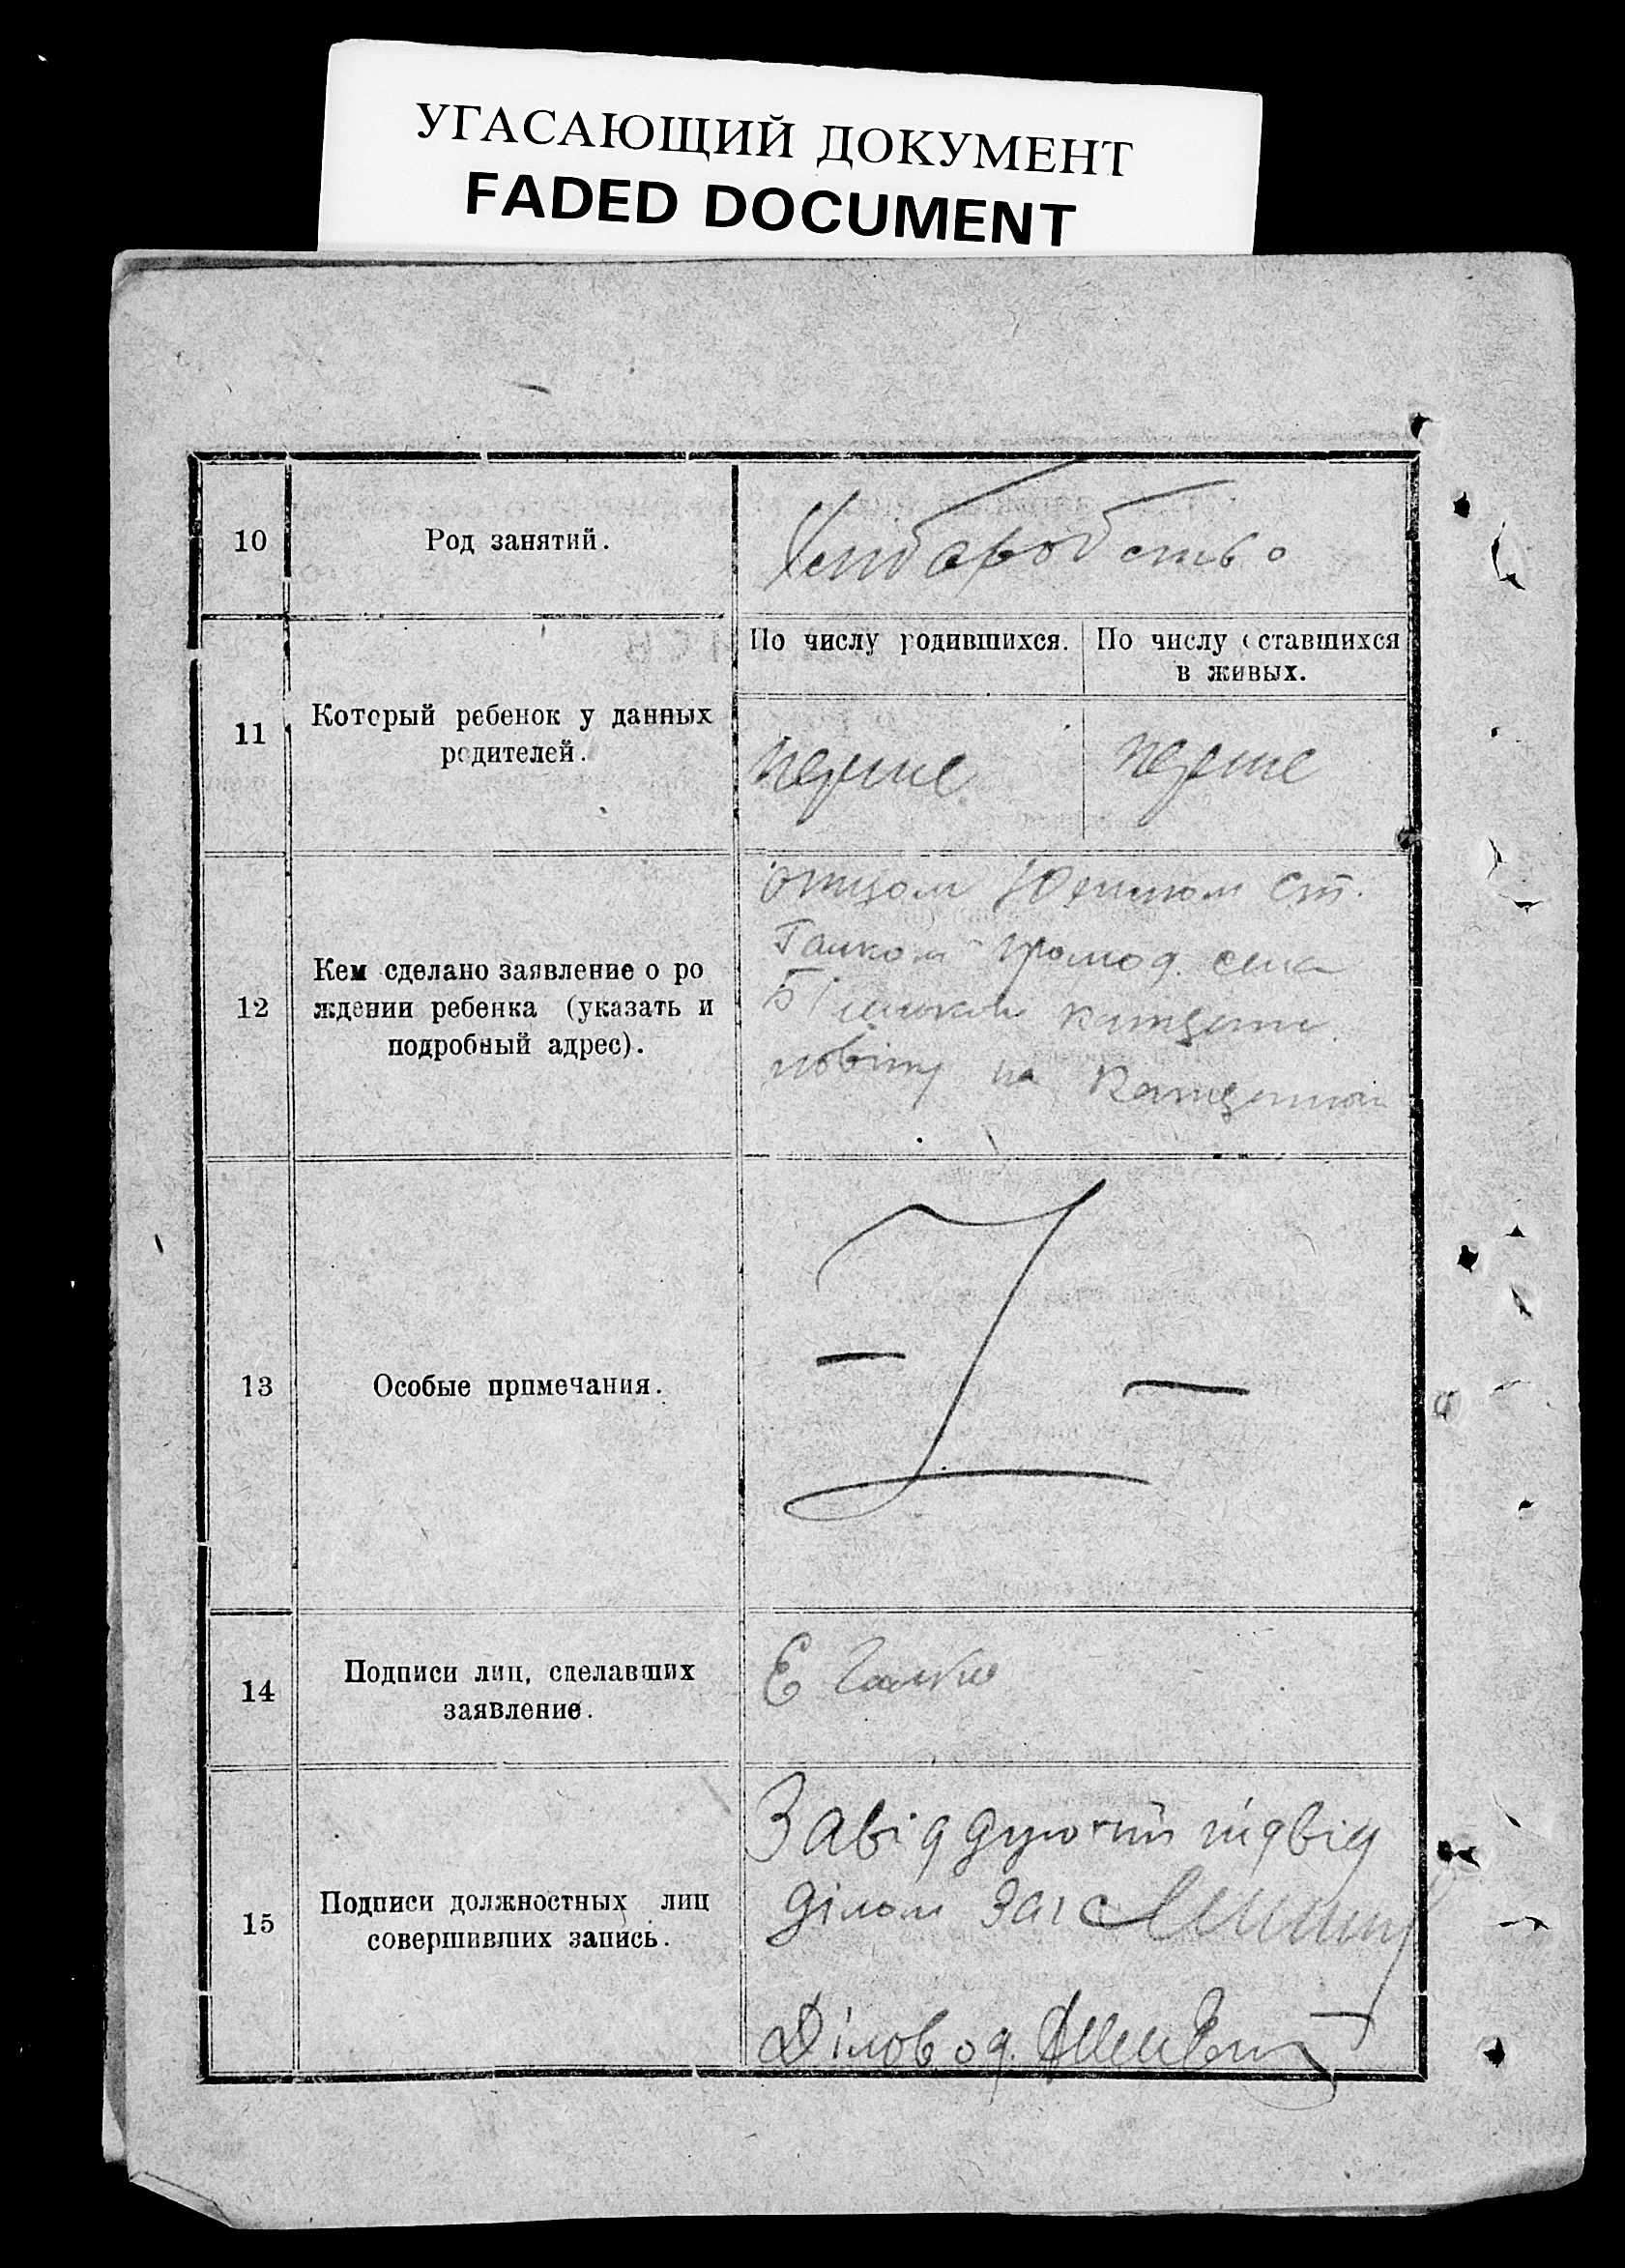 УГАСАЮЩИЙ ДОКУМЕНТ
FADED DOCUMENT
10
Род занятий.
Хлібаробство
11
Который ребенок у данных
родителей.
По числу родившихся.
По числу оставшихся
в живых.
перше
перше
12
Кем сделано заявление о ро
ждении ребенка (указать и
подробный адрес).
отцом
Галком громод. села
повіту на
13
Особые примечания.
14
Подписи лиц, сделавших
заявление.
Е Галко
15
Подписи должностных лиц
совершивших запись.
Завіддуючий підвід
ділом Загс
Діловод.